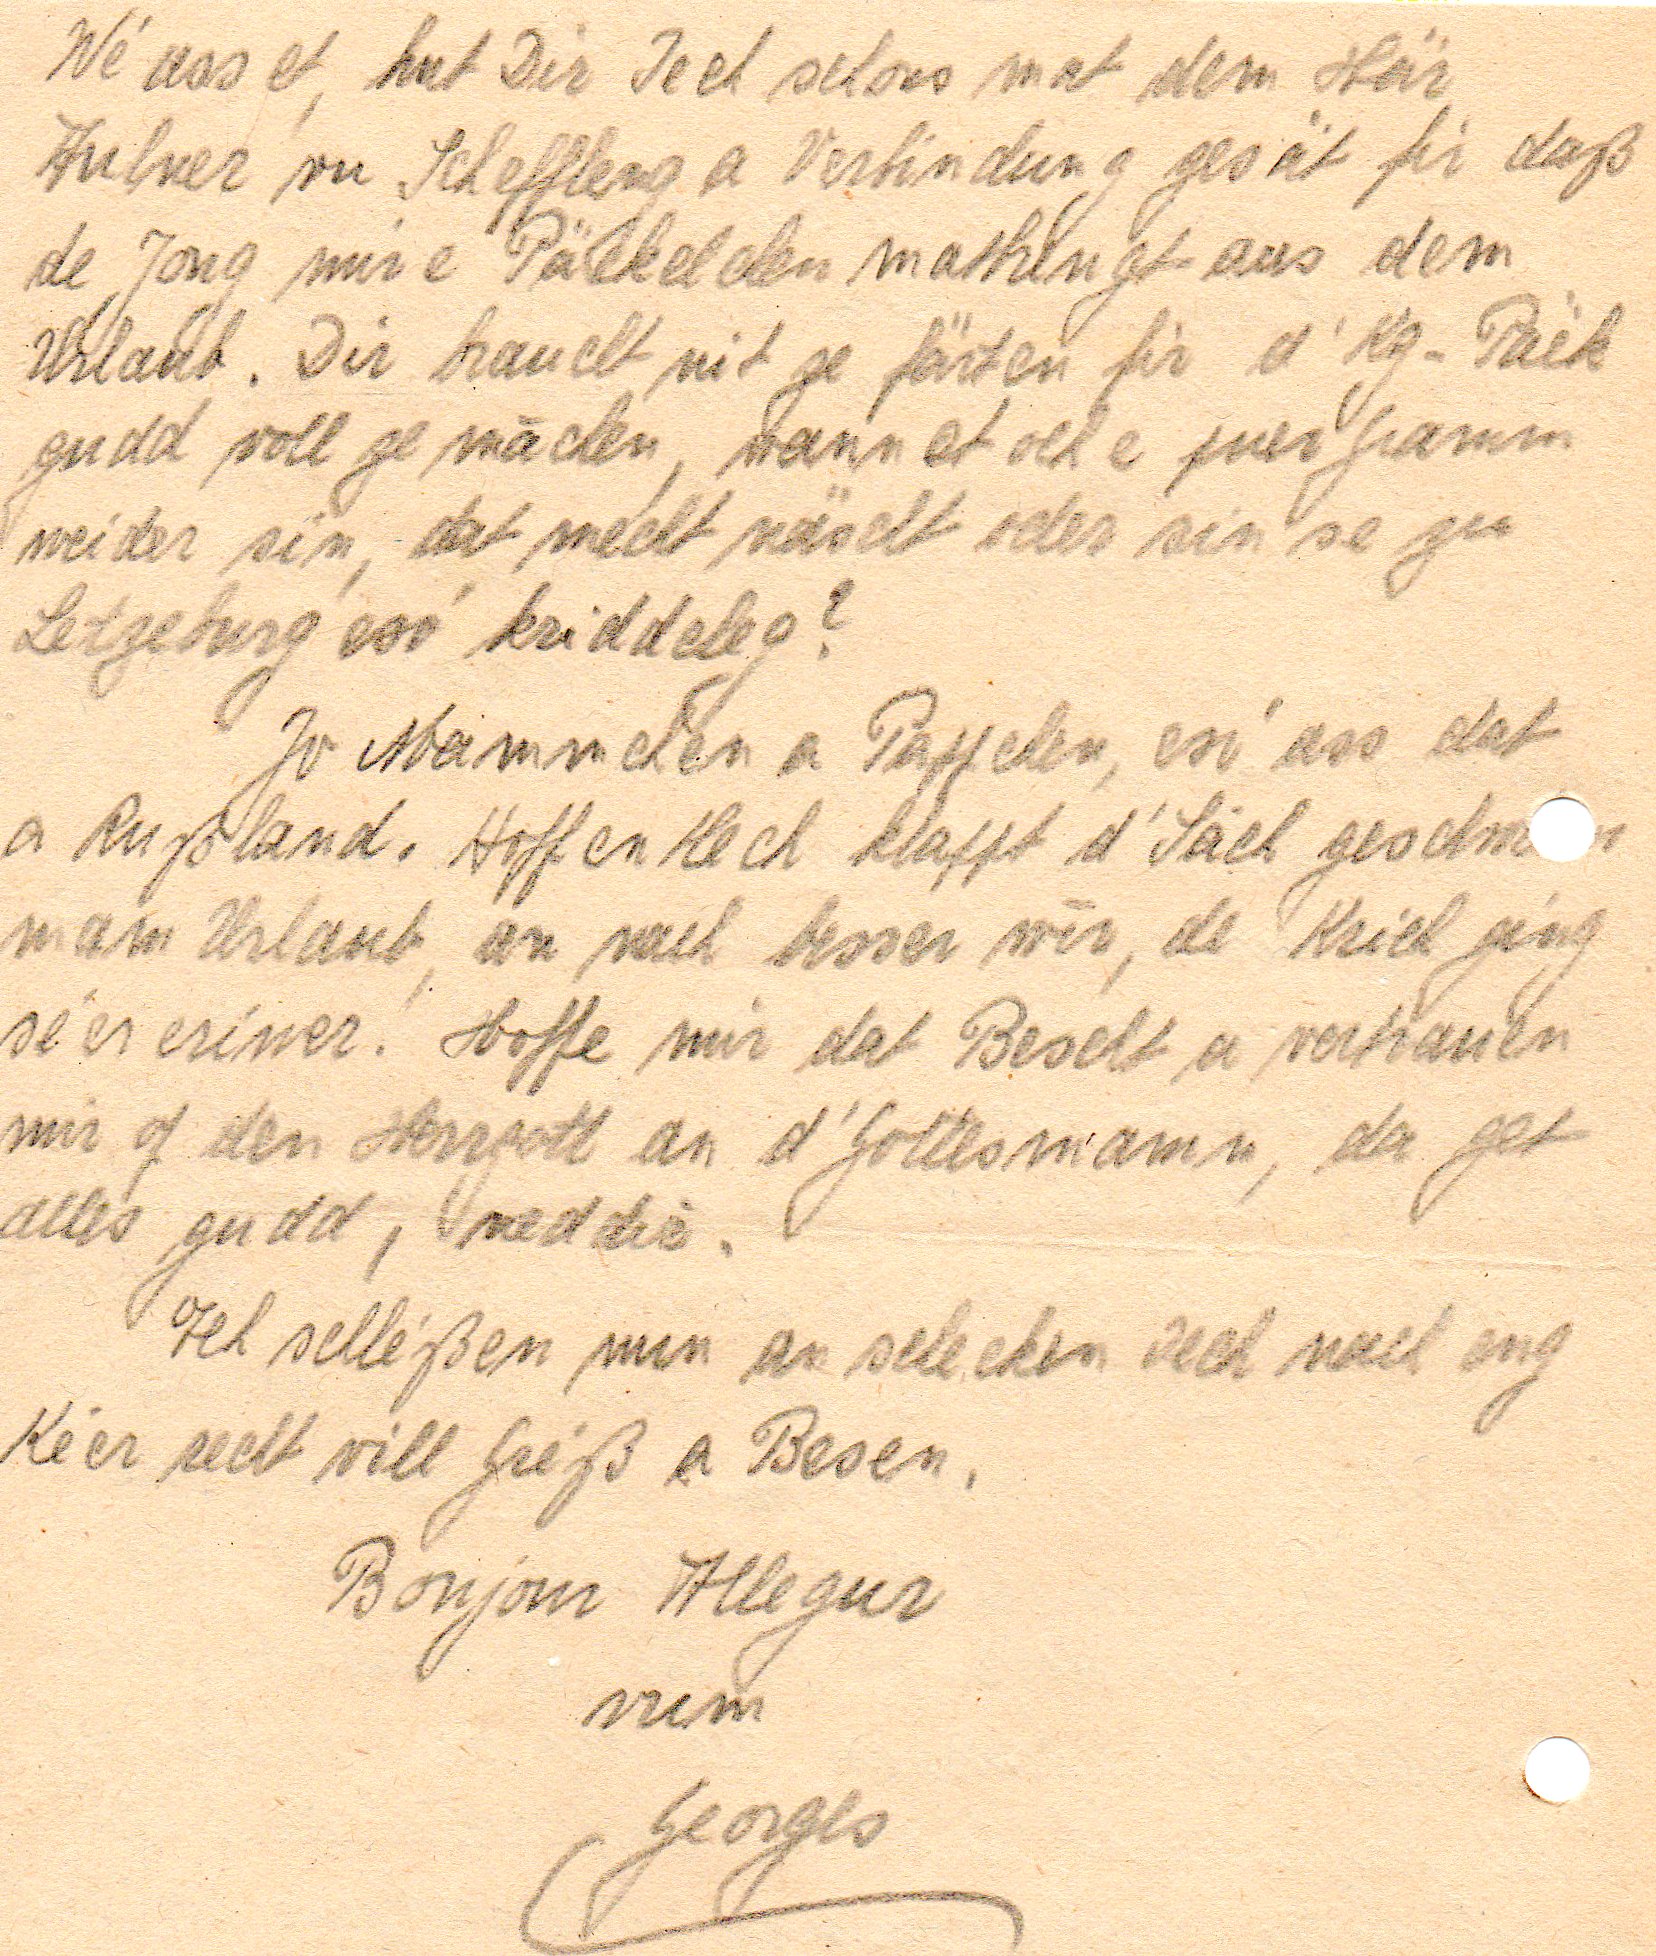 Wé ass et, hut Dir Iech schons mat dem Här
vu Scheffleng a Verbindung gesat fir daß
de Jong mir e Päckelchen mathengt aus dem
Urlaub. Dir braucht nit ze färten fir d'Kg-Päck
gudd voll ze mächen, wann et och e puer Gramm
meider sin, dat mécht näscht oder sin se zu
Letzeburg esó kriddeleg?
Jo Mammchen a Pappchen, esó ass dat
a Rußland. Hoffentlech klappt d'Säch geschw n
mam Urlaub, an nach besser wir, de Krich géng
séer eriwer! Hoffe mir dat Bescht a vertrauen
mir of den Herrgott an d'Gottesmamm, da get
alles gudd, neddir.
Ech schléßen nun an schecken Iech nach eng
Kéer recht vill Gréß a Besen.
Bonjour Alleguer
vum
Georges